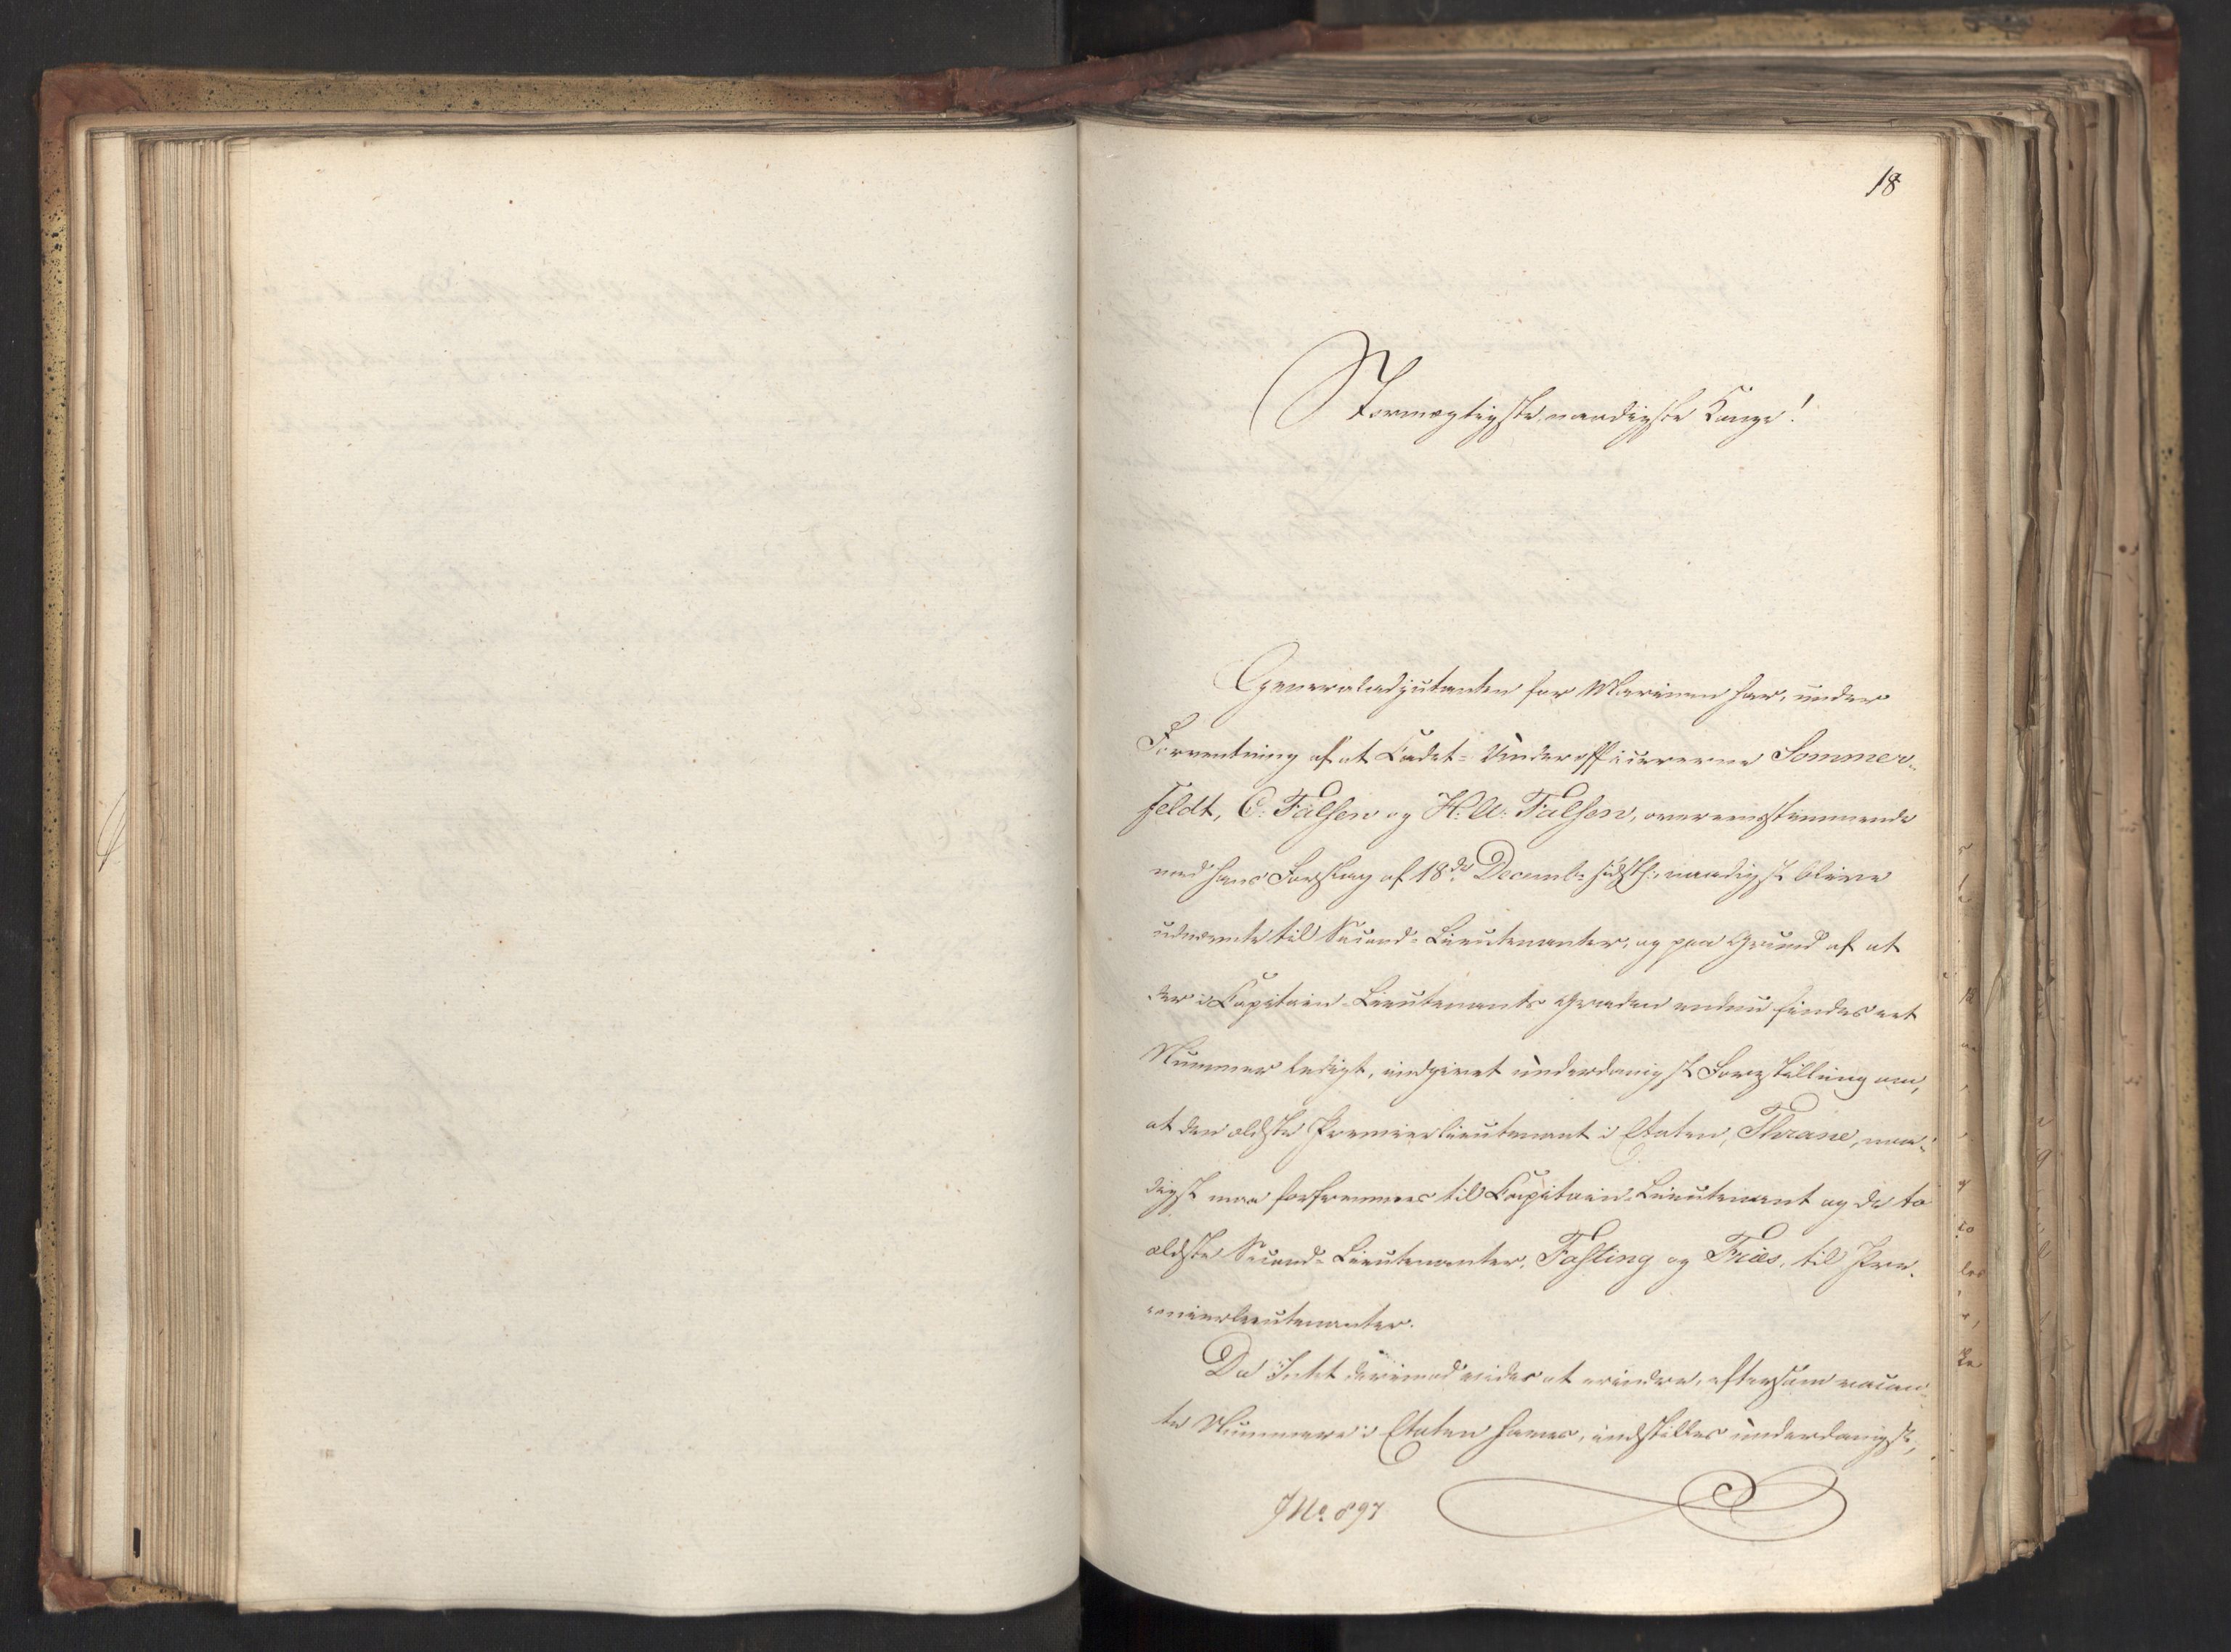 18
Stormægtigste naadigste Konge!
Generaladjutanten for Marinen har, under
Forventning af at Cadet-Underofficererne Sommer-
feldt, C: Falsen og H: A: Falsen, overeensstemmende
med hans Forslag af 18de Decemb: sidstl: naadigst blive
udnævnte til Second-Lieutenanter, og paa Grund af at
der i Capitain-Lieutenants Graden endnu findes eet
Nummer ledigt, indgivet underdanigst Forestilling om,
at den ældste Premierlieutenant i Etaten, Thrane, naa-
digst maa forfremmes til Capitain-Lieutenant og de to
ældste Second-Lieutenanter, Fasting og Friis, til Pre-
mierlieutenanter.
Da Intet derimod vides at erindre, eftersom vacan-
te Nummere i Etaten haves, indstilles underdanigst,
JNo. 897